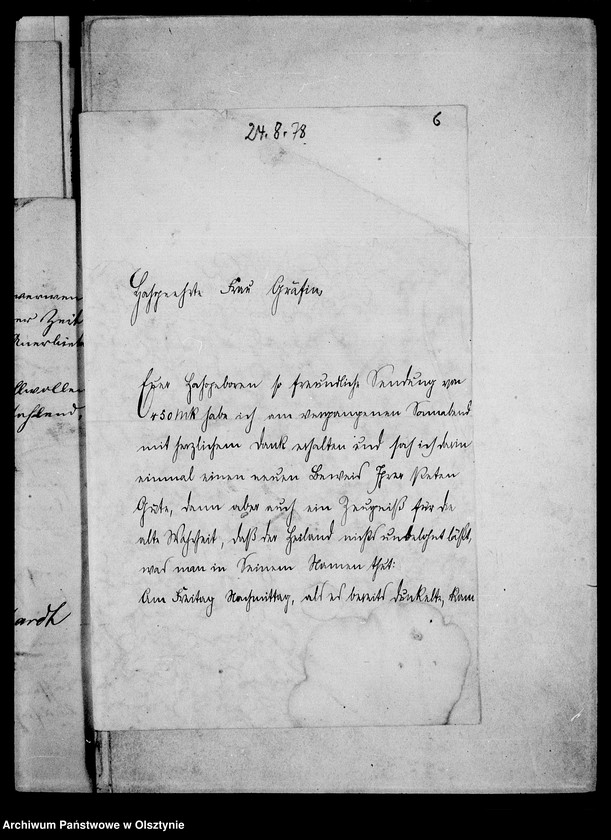 24. 8. 78
6
Hochgeehrte Frau Gräfin
Euer Hochgeboren so freundliche Sendung von
150 Mk habe ich am vergangenen Sonnabend
mit herzlichem Dank erhalten und sah ich darin
einmal einen neuen Beweis Ihrer steten
Güte, dann aber auch ein Zeugniß für die
alte Wahrheit, daß der Heiland nichts unbelohnt läßt,
was man in Seinem Namen thut:
Am Freitag Nachmittag, als es bereits dunkelte, kam
er Zeit
Archiwum Państwowe w Olsztynie